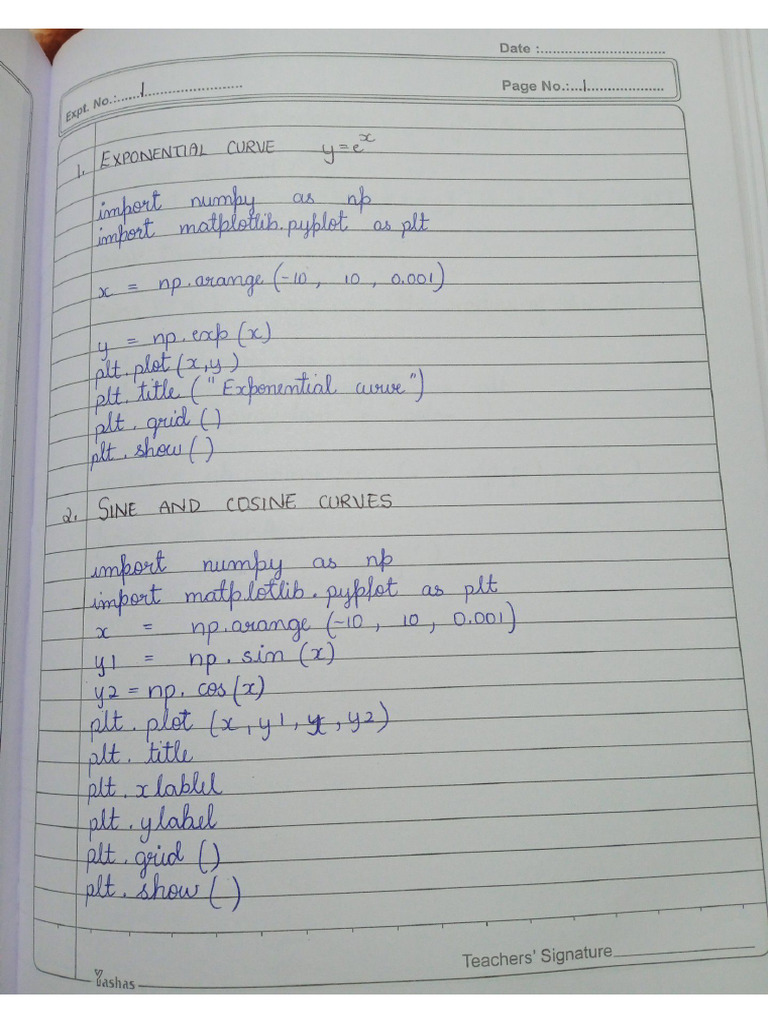 Date :..............................
Expt. No.:......1........................
Page No.:...1....................
1. EXPONENTIAL CURVE y=e^x
import numpy as np
import matplotlib.pyplot as plt
x = np.arange(-10, 10, 0.001)
y = np.exp(x)
plt.plot(x,y)
plt.title("Exponential curve")
plt.grid()
plt.show()
2. SINE AND COSINE CURVES
import numpy as np
import matplotlib.pyplot as plt
x = np.arange(-10, 10, 0.001)
y1 = np.sin(x)
y2 = np.cos(x)
plt.plot(x, y1, x, y2)
plt.title
plt.xlablel
plt.ylabel
plt.grid()
plt.show()
Teachers' Signature
Yashas